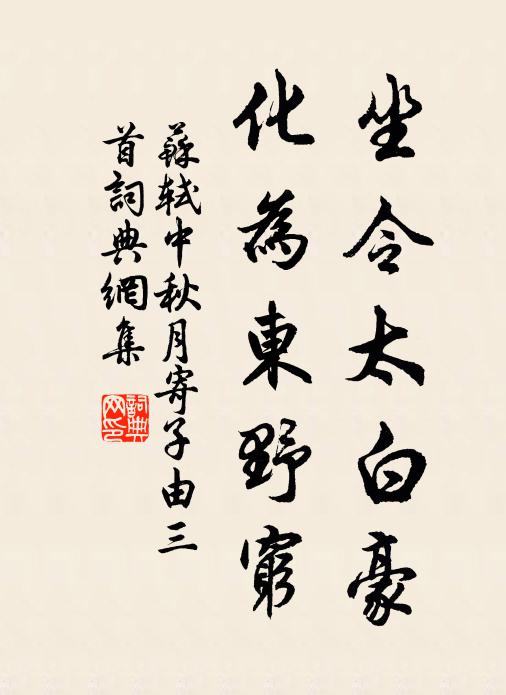 坐令太白豪
化為東野窮
蘇軾中秋月寄子由三
首詞典網集
詞典
网印